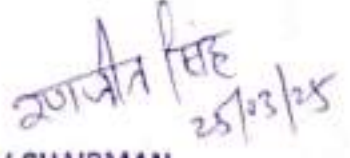 रणजीत सिंह
25/03/25
CHAIRMAN